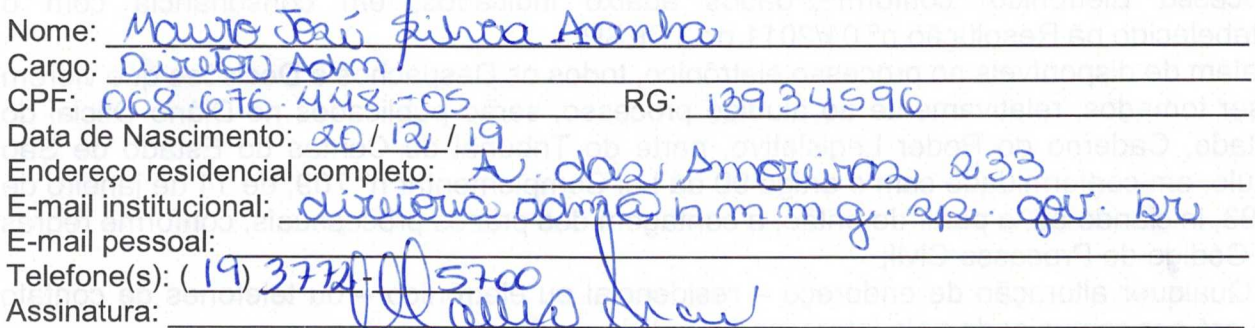 Nome: Mauro José Silva Aranha
Cargo: Diretor Adm.
CPF: 068.676.448-05 RG: 13934596
Data de Nascimento: 20/12/19
Endereço residencial completo: Av. das Amoreiras 233
E-mail institucional: diretoria.adm@hmmg.sp.gov.br
E-mail pessoal:
Telefone(s): (19) 3772-5700
Assinatura: